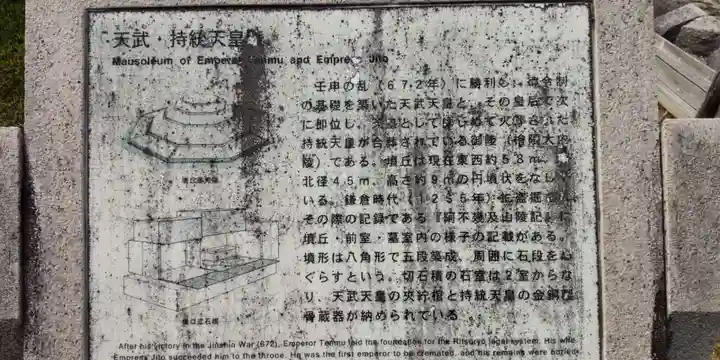 天武・持統天皇陵
Mausoleum of Emperor Tenmu and Empress Jito
壬申の乱(672年)に勝利し、律令制
の基礎を築いた天武天皇と、その皇后で次
に即位し、天皇としてはじめて火葬された
持統天皇が合葬されている御陵(檜隈大内
陵)である。墳丘は現在東西約58m、
北径45m、高さ約9mの円墳状をなして
いる。鎌倉時代(1235年)に盗掘
その際の記録である『阿不幾及山陵記』に
墳丘・前室・墓室内の様子の記載がある。
墳形は八角形で五段築成、周囲に石段をめ
ぐらすという。切石積の石室は2室からな
り、天武天皇の夾紵棺と持統天皇の金銅製
骨蔵器が納められている
After his victory in the Jinshin War (672), Emperor Tenmu laid the foundation for the Ritsuryo legal system. His wife
Empress Jito succeeded him to the throne. He was the first emperor to be cremated, and his remains were buried